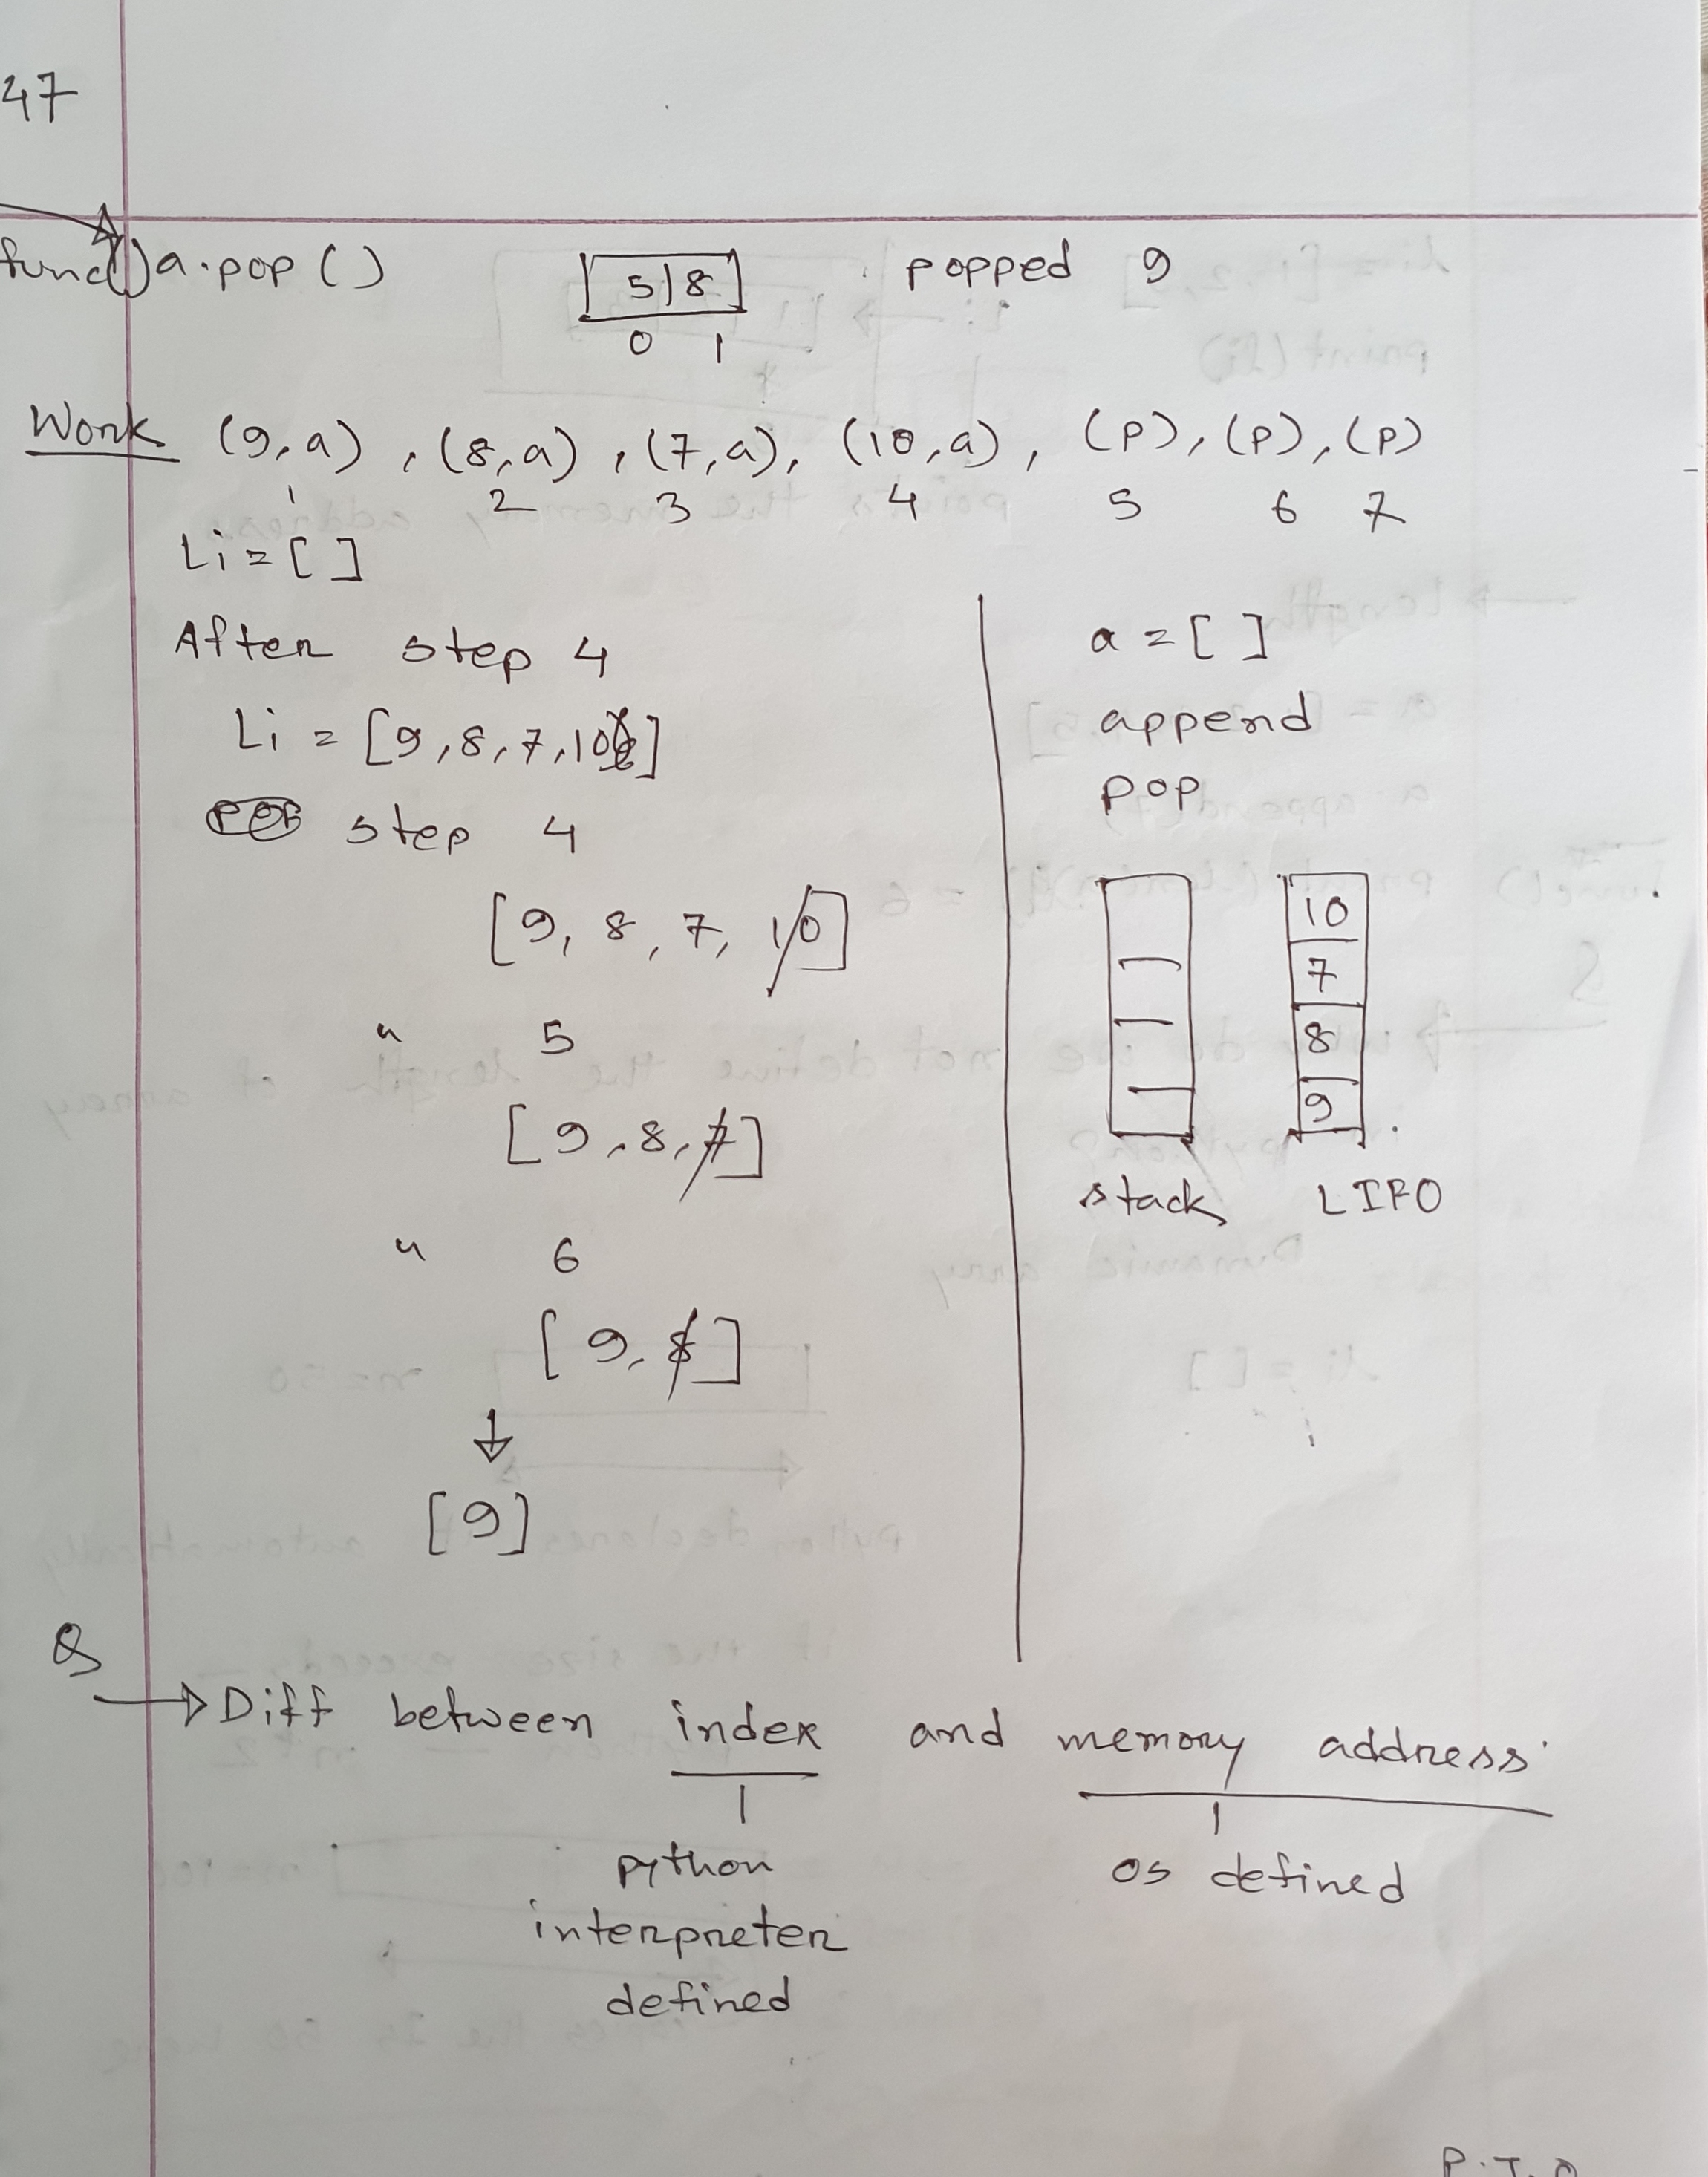 47
func() a.pop() 5|8 popped 9
0 1
Work (9,a), (8,a), (7,a), (10,a), (p), (p), (p)
1 2 3 4 5 6 7
Li=[]
After step 4
Li = [9,8,7,10]
step 4
[9, 8, 7, 10]
" 5
[9,8,7]
" 6
[9,8]
[9]
a=[]
append
pop
10
7
8
9
stack LIFO
Q
Diff between index and memory address
python
interpreter
defined
os defined
P.T.O